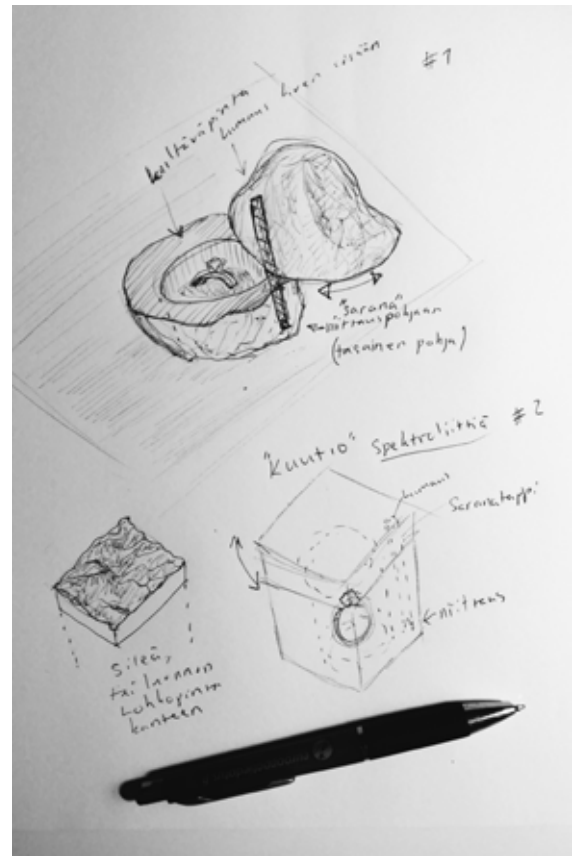 #1
humaus kiven sisään
"sarana"
niittaus pohjaan
(tasainen pohja)
#2
"Kuutio" Spektroliittiä
humaus
Saranatappi
niittaus
Sileä,
tai luonnon
Lohkopinta
kanteen